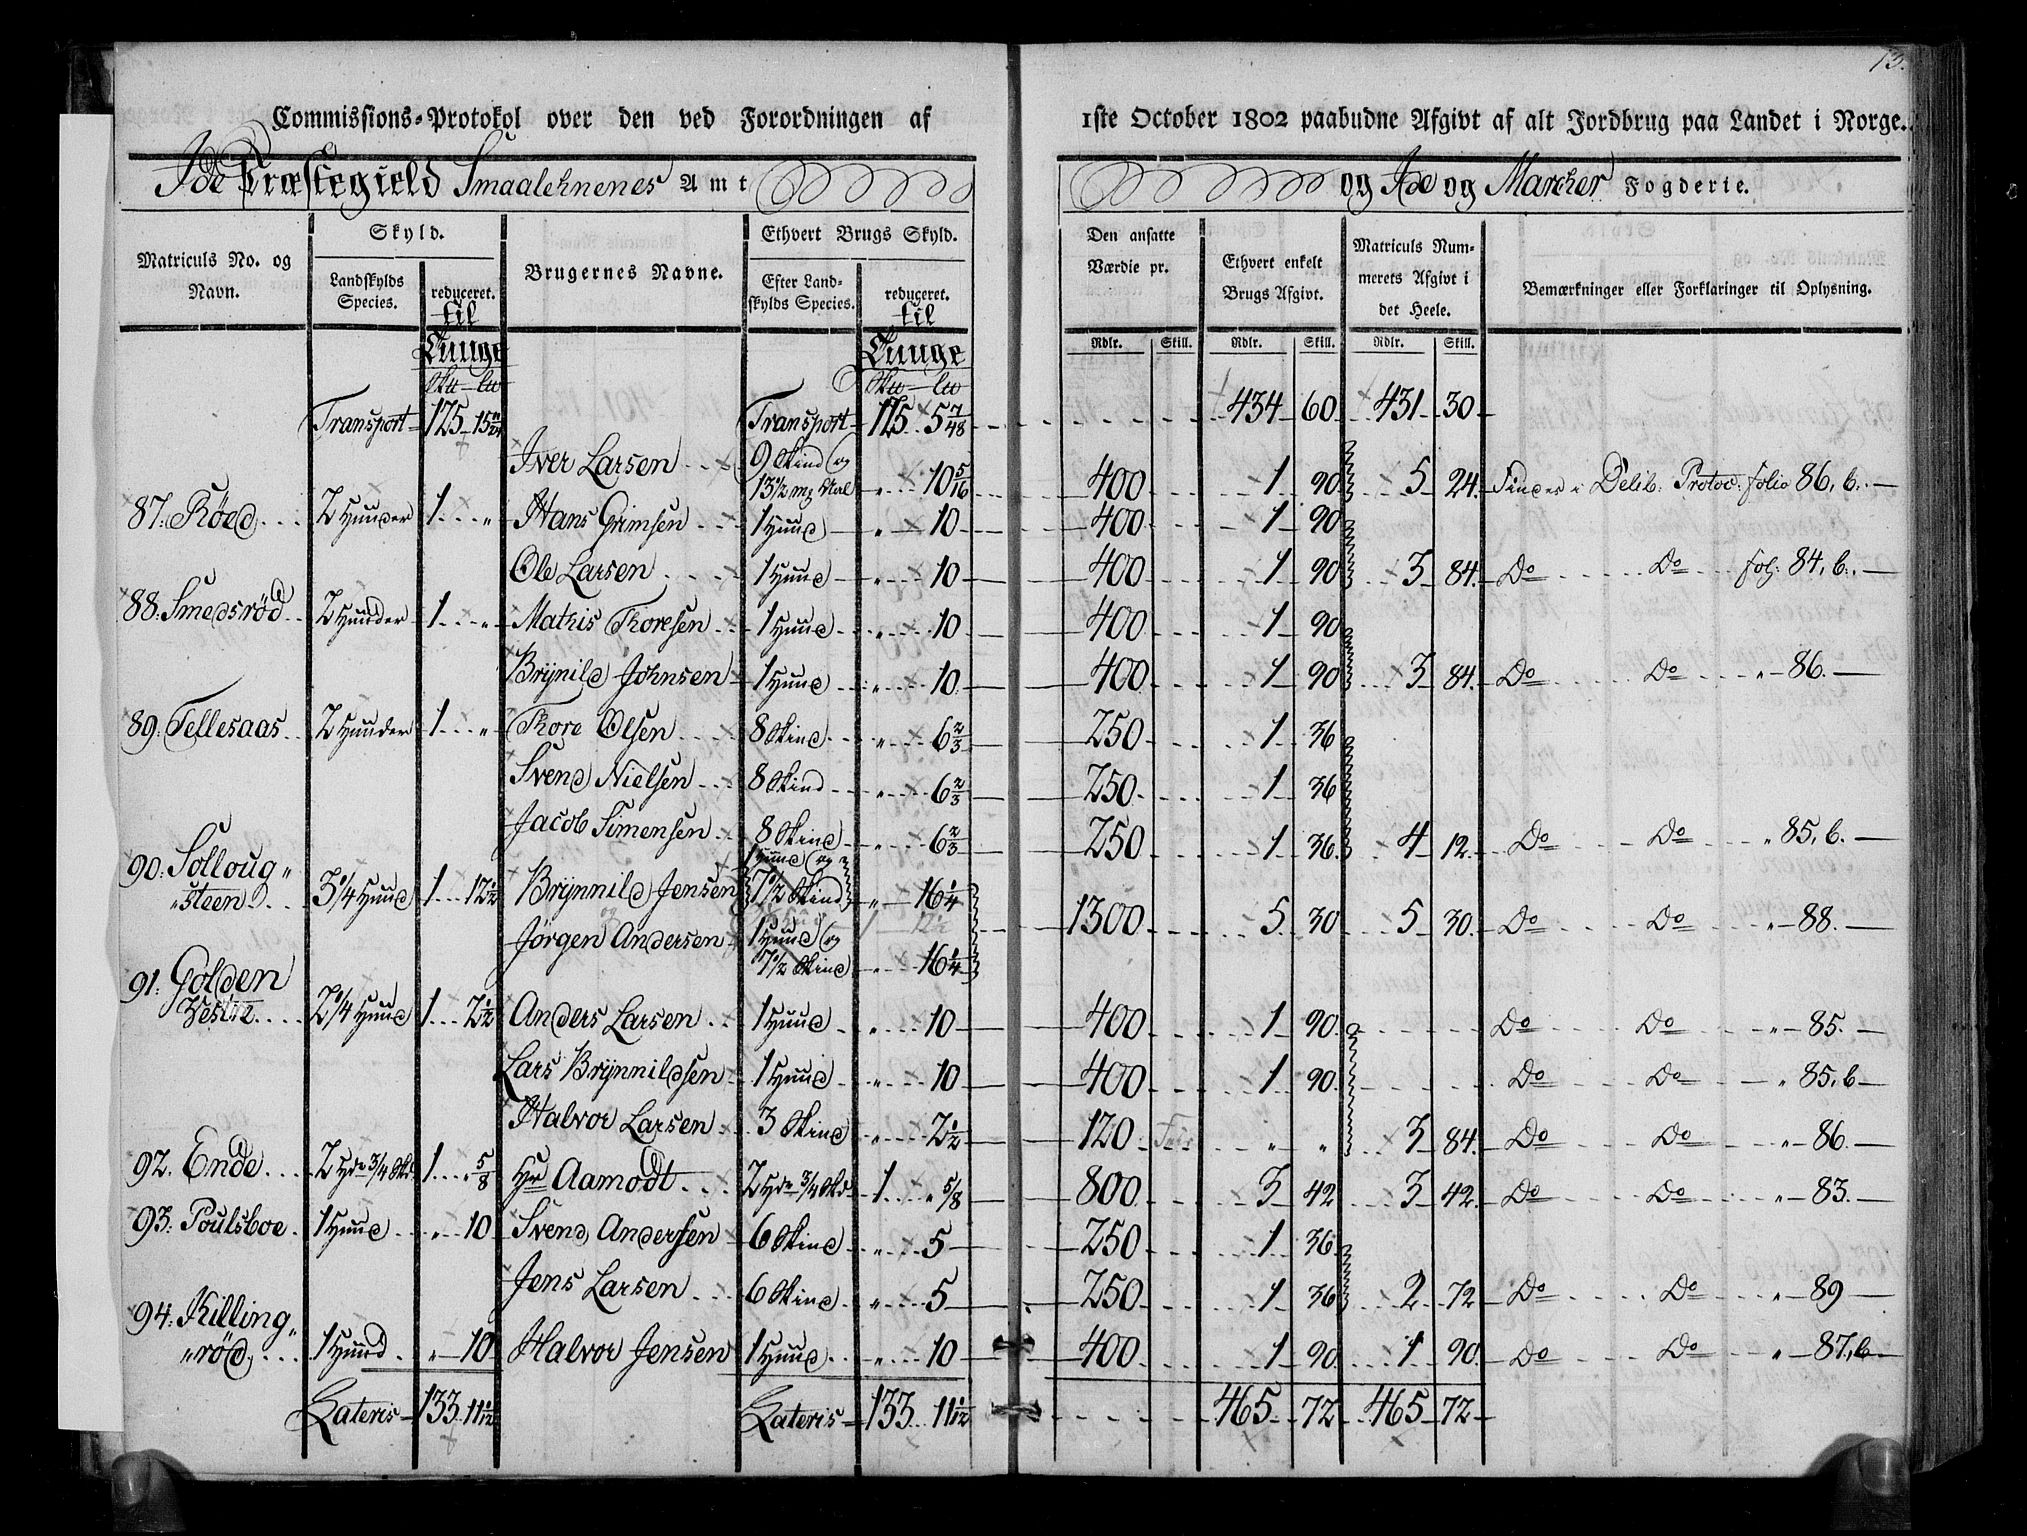 13.
Commissions-Protokol over den ved Forordningen af 1ste October 1802 paabudne Afgivt af alt Jordbrug paa Landet i Norge.
Ide Præstegield Smaalehnenes Amt og Ide og Marcher Fogderie.
Matriculs No. og Navn. Skyld. Landskylds Species. reduceret. til Tunge Brugernes Navne. Ethvert Brugs Skyld. Efter Landskylds Species. reduceret. til Tunge Den ansatte Værdie pr. Rdlr. Skill. Ethvert enkelt Brugs Afgivt. Rdlr. Skill. Matriculs Nummerets Afgivt i det Heele. Rdlr. Skill. Bemærkninger eller Forklaringer til Oplysning.
Transport 175 15 Transport 175 5 7/48 434 60 431 30
Iver Larsen 9 Skind og 13 1/2 mg Mal " 10 5/16 400 1 90 5 24 Findes i Delib: Protoc: folio 86, b.
87. Röed 2 Huuder 1 " Hans Grimsen 1 Huud " 10 400 1 90
Ole Larsen 1 Huud " 10 400 1 90 3 84 Do Do fol: 84, b.
88. Smedsröd 2 Huuder 1 " Mathis Thoresen 1 Huud " 10 400 1 90
Brÿnild Johnsen 1 Huud " 10 400 1 90 3 84 Do Do " 86.
89. Tellesaas 2 Huuder 1 " Thore Olsen 8 Skind " 6 2/3 250 1 36
Svend Nielsen 8 Skind " 6 2/3 250 1 36
Jacob Simensen 8 Skind " 6 2/3 250 1 36 4 12 Do Do " 85, b.
90. Solloug"
"steen 3 1/4 Huud 1 12 1/2 Brÿnnild Jensen 1 Huud og 7 1/2 Skind " 16 1/4 1300 5 30 5 30 Do Do " 88.
og Jörgen Andersen 1 Huud og 7 1/2 Skind " 16 1/4
91. Golden
Vestre 2 1/4 Huud 1 2 1/2 Anders Larsen 1 Huud " 10 400 1 90 Do Do " 85.
Lars Brÿnnildsen 1 Huud " 10 400 1 90 Do Do " 85, b
Halvor Larsen 3 Skind " 2 1/2 120 Frie " " 3 84 Do Do " 86.
92. Ende 2 Hdr 3/4 Skd 1 " 5/8 Hr Aamodt 2 Hdr 3/4 Skd 1 " 5/8 800 3 42 3 42 Do Do " 83.
93. Poulsboe 1 Huud " 10 Svend Andersen 6 Skind " 5 250 1 36
Jens Larsen 6 Skind " 5 250 1 36 2 72 Do Do " 89
94. Killing"
"röd 1 Huud " 10 Halvor Jensen 1 Huud " 10 400 1 90 1 90 Do Do " 87, b
Lateris 133 11 1/2 Lateris 133 11 1/2 465 72 465 72